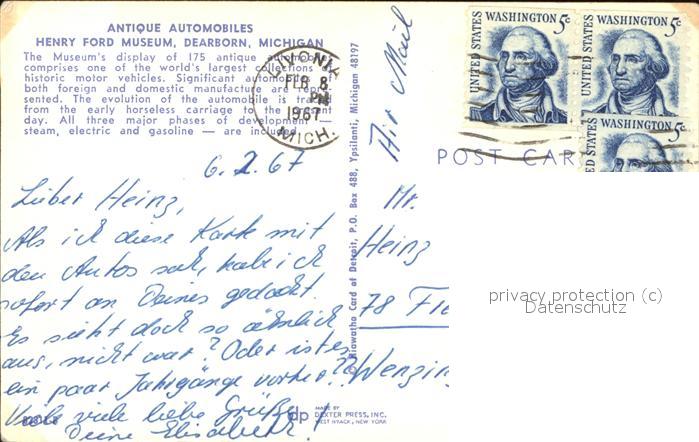 ANTIQUE AUTOMOBILES
HENRY FORD MUSEUM, DEARBORN, MICHIGAN
The Museum's display of 175 antique automobiles
comprises one of the world's largest collections of
historic motor vehicles. Significant automobiles
both foreign and domestic manufacture are repre-
sented. The evolution of the automobile is traced
from the early horseless carriage to the present
day. All three major phases of development —
steam, electric and gasoline — are included.
LIVONIA
FEB 8
PM
1967
MICH.
6.2.67
Lieber Heinz,
Als ich diese Karte mit
den Autos sah, hab ich
sofort an Deines gedacht.
Es sieht doch so ähnlich
aus, nicht war? Oder ist es
ein paar Jahrgänge vorher??
Viele viele liebe Grüße
Deine Elisabeth!
dp
MADE BY
DEXTER PRESS, INC.
WEST NYACK, NEW YORK
© Hiawatha Card of Detroit, P.O. Box 488, Ypsilanti, Michigan 48197
Air Mail
UNITED STATES
WASHINGTON 5c
UNITED STATES
WASHINGTON 5c
ED STATES
WASHINGTON 5c
POST CAR
Mr.
Heinz
78
Wenzin
privacy protection (c)
Datenschutz